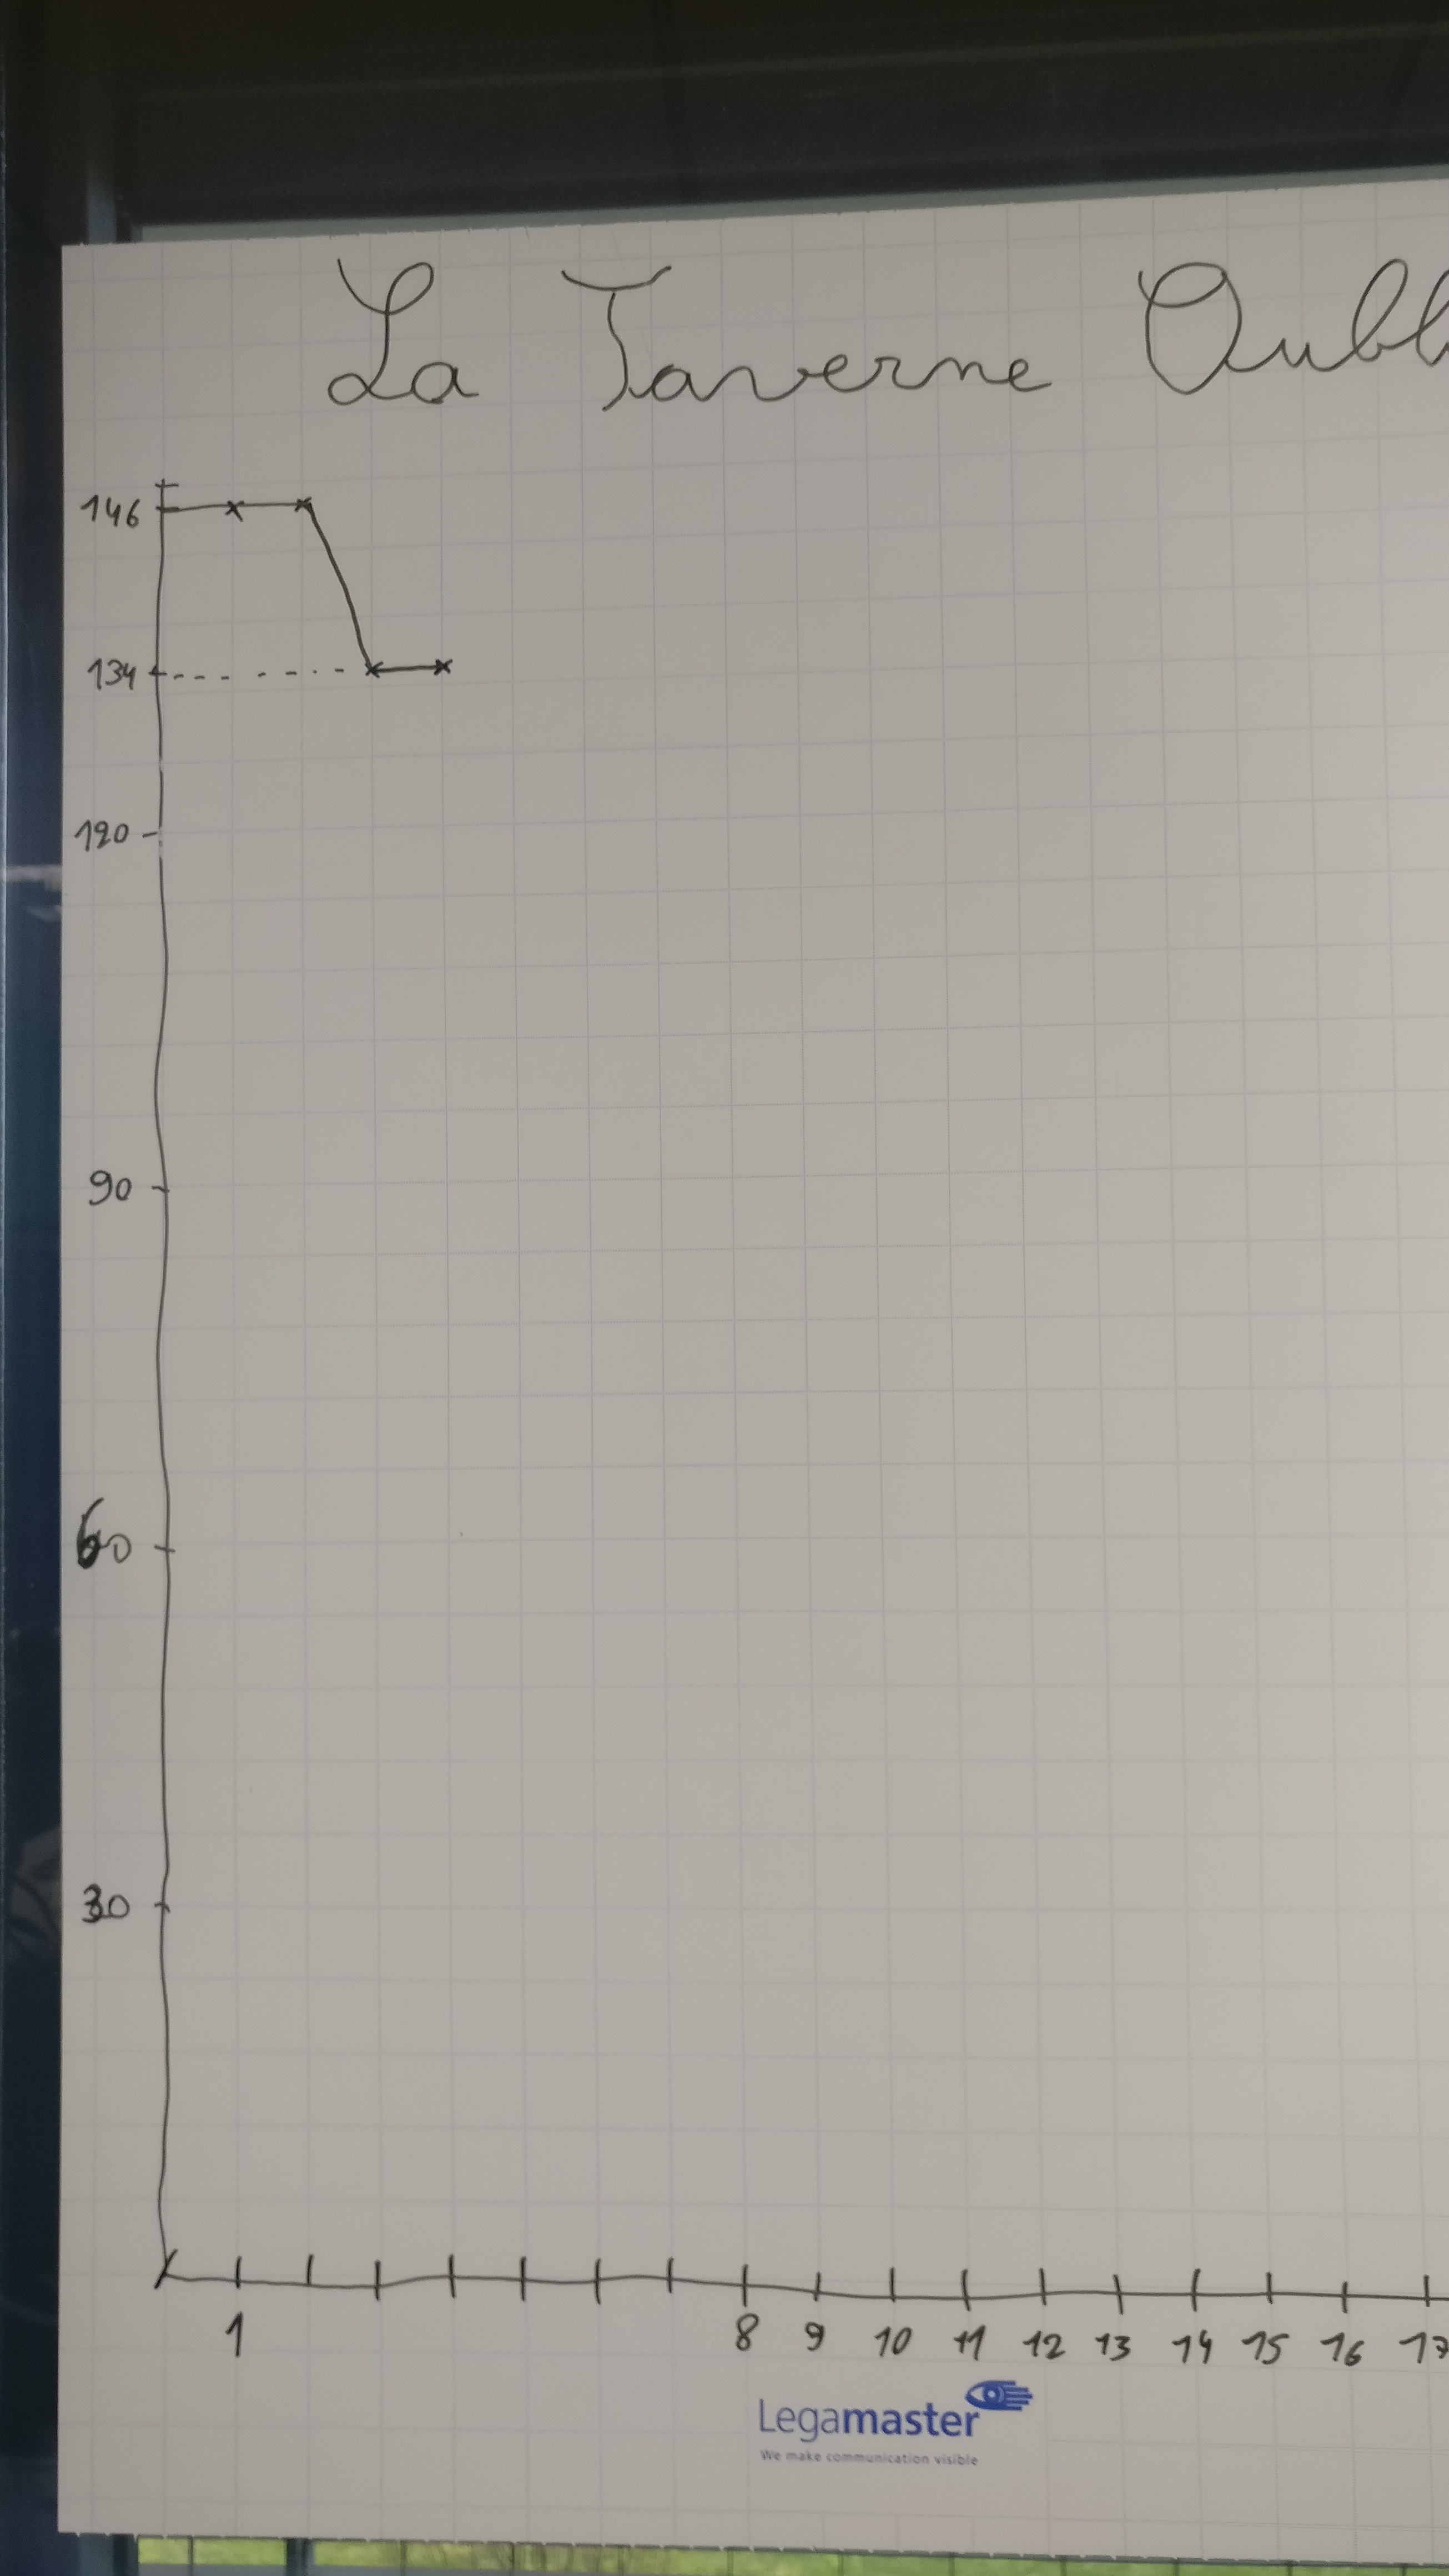 La Taverne Oubl
146
134
120
90
60
30
1 8 9 10 11 12 13 14 15 16 17
Legamaster
We make communication visible